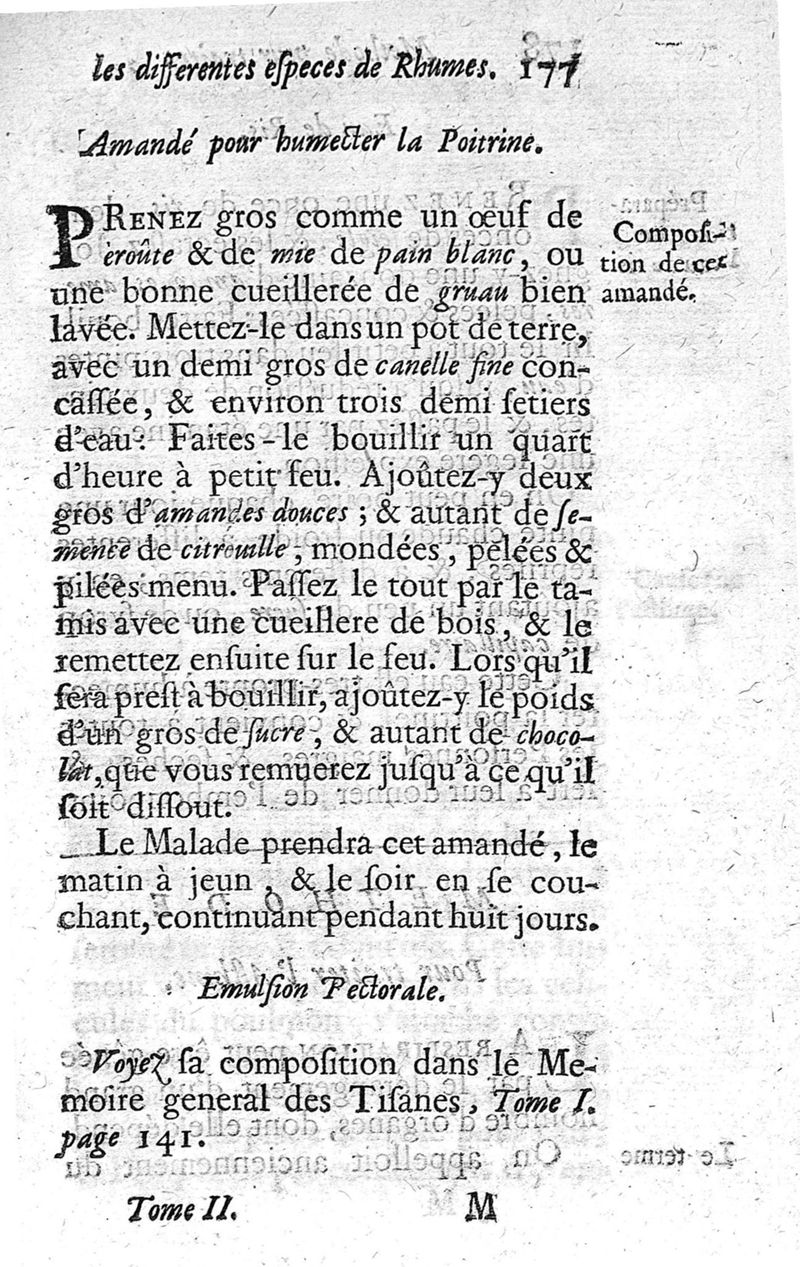 les differentes eſpeces de Rhumes. 177
Amandé pour humecter la Poitrine.
PRENEZ gros comme un œuf de
croûte & de mie de pain blanc, ou
une bonne cueillerée de gruau bien
lavée. Mettez-le dans un pot de terre,
avec un demi gros de canelle fine con-
caſſée, & environ trois demi ſetiers
d'eau. Faites-le bouillir un quart
d'heure à petit feu. Ajoûtez-y deux
gros d'amandes douces ; & autant de ſe-
mence de citrouille, mondées, pelées &
pilées menu. Paſſez le tout par le ta-
mis avec une cueillere de bois, & le
remettez enſuite ſur le feu. Lors qu'il
ſera preſt à bouillir, ajoûtez-y le poids
d'un gros de ſucre, & autant de choco-
lat, que vous remuerez juſqu'à ce qu'il
ſoit diſſout.
Compoſi-
tion de cet
amandé.
Le Malade prendra cet amandé, le
matin à jeun, & le ſoir en ſe cou-
chant, continuant pendant huit jours.
Emulſion Pectorale.
Voyez ſa compoſition dans le Me-
moire general des Tiſanes, Tome I.
page 141.
Tome II. M